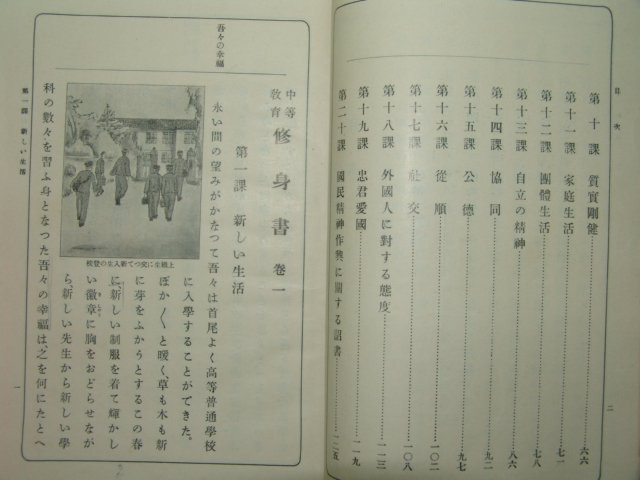 目次
第十課 質實剛健……六六
第十一課 家庭生活……七一
第十二課 團體生活……七八
第十三課 自立の精神……八六
第十四課 協同……九二
第十五課 公德……九七
第十六課 從順……一〇二
第十七課 社交……一〇八
第十八課 外國人に對する態度……一一三
第十九課 忠君愛國……一一九
第二十課 國民精神作興に關する詔書……一二五
二
吾々の幸福
中等教育 修身書 卷一
第一課 新しい生活
永い間の望みがかなつて吾々は首尾よく高等普通學校
に入學することができた。
ぽか〱と暖く、草も木も新
に芽をふかうとするこの春
に、新しい制服を着て輝かし
い徽章に胸をおどらせなが
ら、新しい先生から新しい學
科の數々を習ふ身となつた吾々の幸福は、之を何にたとへ
上級生に交つて新入生の登校
第一課 新しい生活
一